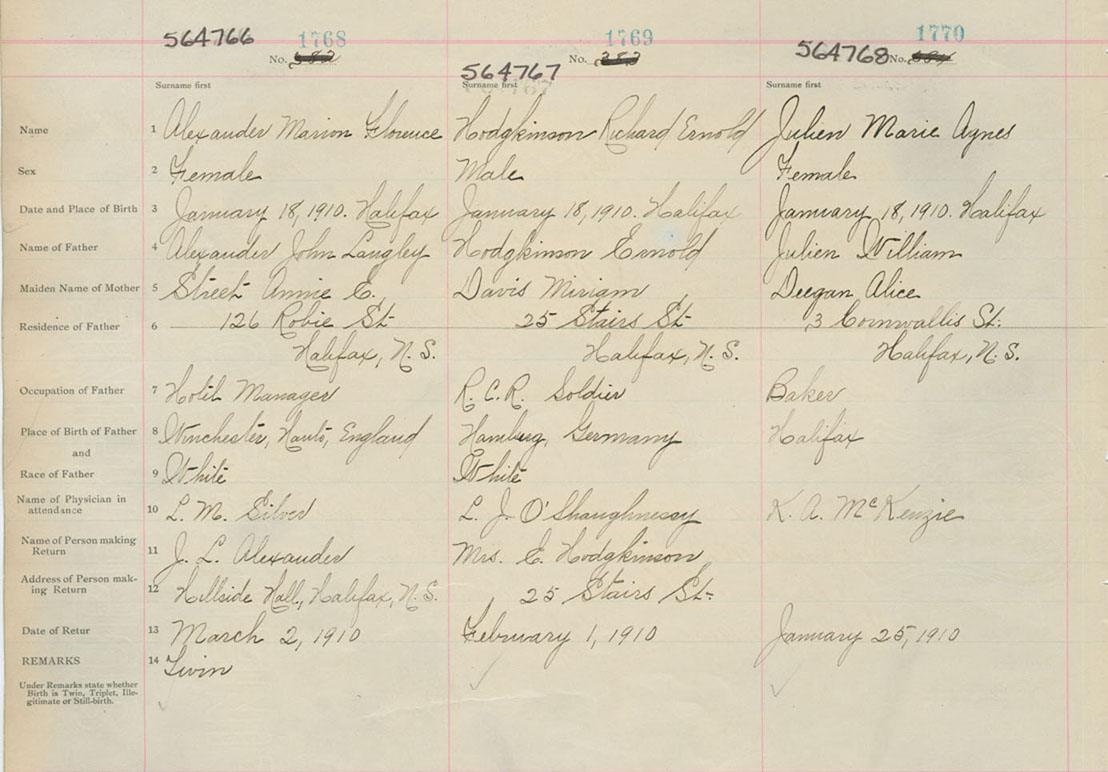 564766 1768 1769 1770
564767 564768
No. 382 No. 383 No. 384
Surname first Surname first Surname first
Name 1 Alexander Marion Florence Hodgkinson Richard Ernold Julien Marie Agnes
Sex 2 Female Male Female
Date and Place of Birth 3 January 18, 1910. Halifax January 18, 1910. Halifax January 18, 1910. Halifax
Name of Father 4 Alexander John Langley Hodgkinson Ernold Julien William
Maiden Name of Mother 5 Street Annie E. Davis Miriam Deegan Alice
Residence of Father 6 126 Robie St. 25 Stairs St. 3 Cornwallis St.
Halifax, N.S. Halifax, N.S. Halifax, N.S.
Occupation of Father 7 Hotel Manager R.C.R. Soldier Baker
Place of Birth of Father 8 Winchester, Hants, England Hamburg, Germany Halifax
and
Race of Father 9 White White
Name of Physician in
attendance 10 L. M. Silver L. J. O'Shaughnessy K. A. McKenzie
Name of Person making
Return 11 J. L. Alexander Mrs. E. Hodgkinson
Address of Person mak-
ing Return 12 Hillside Hall, Halifax, N.S. 25 Stairs St.
Date of Retur 13 March 2, 1910 February 1, 1910 January 25, 1910
REMARKS 14 Twin
Under Remarks state whether
Birth is Twin, Triplet, Ille-
gitimate or Still-birth.